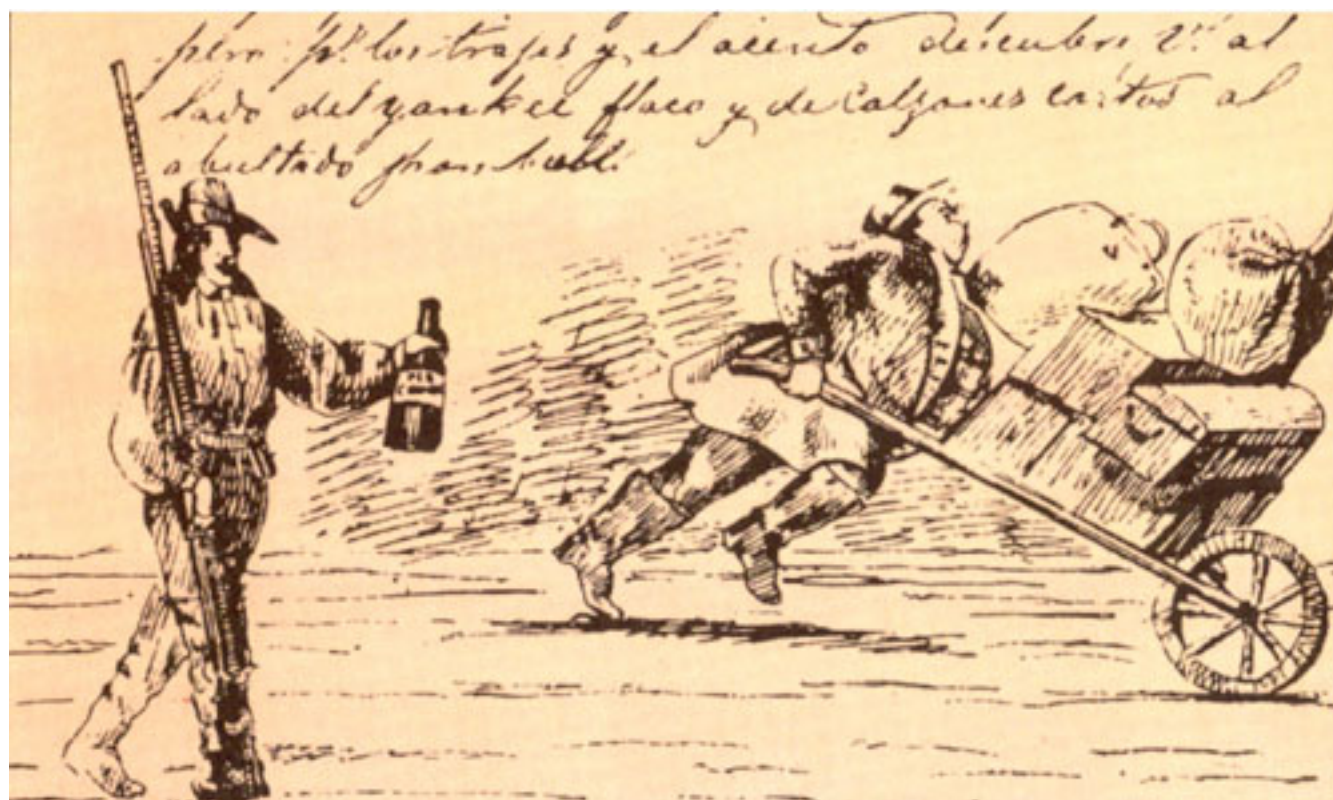 pero pr. los trajes y el acento descubre V. al
lado del yankee flaco y de calzones cortos al
abultado jhon bull.